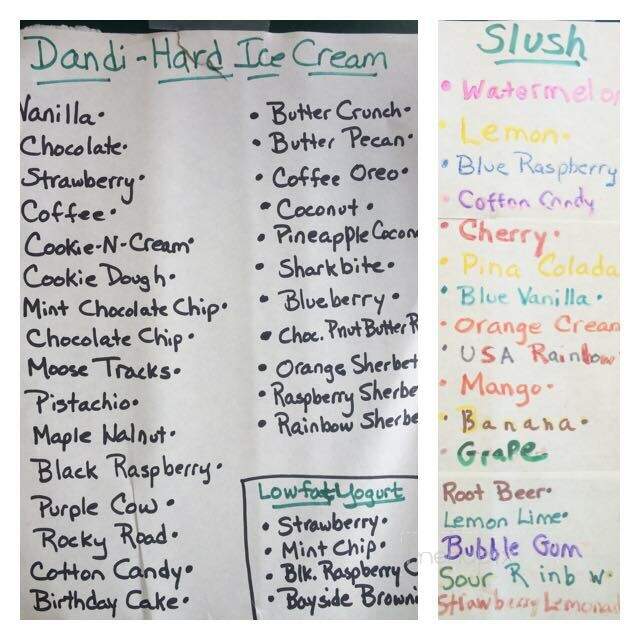 Dandi - Hard Ice Cream
Vanilla•
Chocolate•
Strawberry•
Coffee•
Cookie-N-Cream•
Cookie Dough•
Mint Chocolate Chip•
Chocolate Chip•
Moose Tracks•
Pistachio•
Maple Walnut•
Black Raspberry•
Purple Cow•
Rocky Road•
Cotton Candy•
Birthday Cake•
• Butter Crunch•
• Butter Pecan•
• Coffee Oreo•
• Coconut•
• Pineapple Cocon
• Sharkbite•
• Blueberry•
• Choc. Pnut Butter R
• Orange Sherbet
• Raspberry Sherbe
• Rainbow Sherbe
Low-fat Yogurt
• Strawberry•
• Mint Chip•
• Blk. Raspberry C
• Bayside Browni
Slush
• Watermelon
• Lemon•
• Blue Raspberry
• Cotton Candy
• Cherry•
• Pina Colada
• Blue Vanilla•
• Orange Cream
• USA Rainbow
• Mango•
• Banana•
• Grape
Root Beer•
Lemon Lime•
Bubble Gum
Sour R inb w•
Strawberry Lemonad